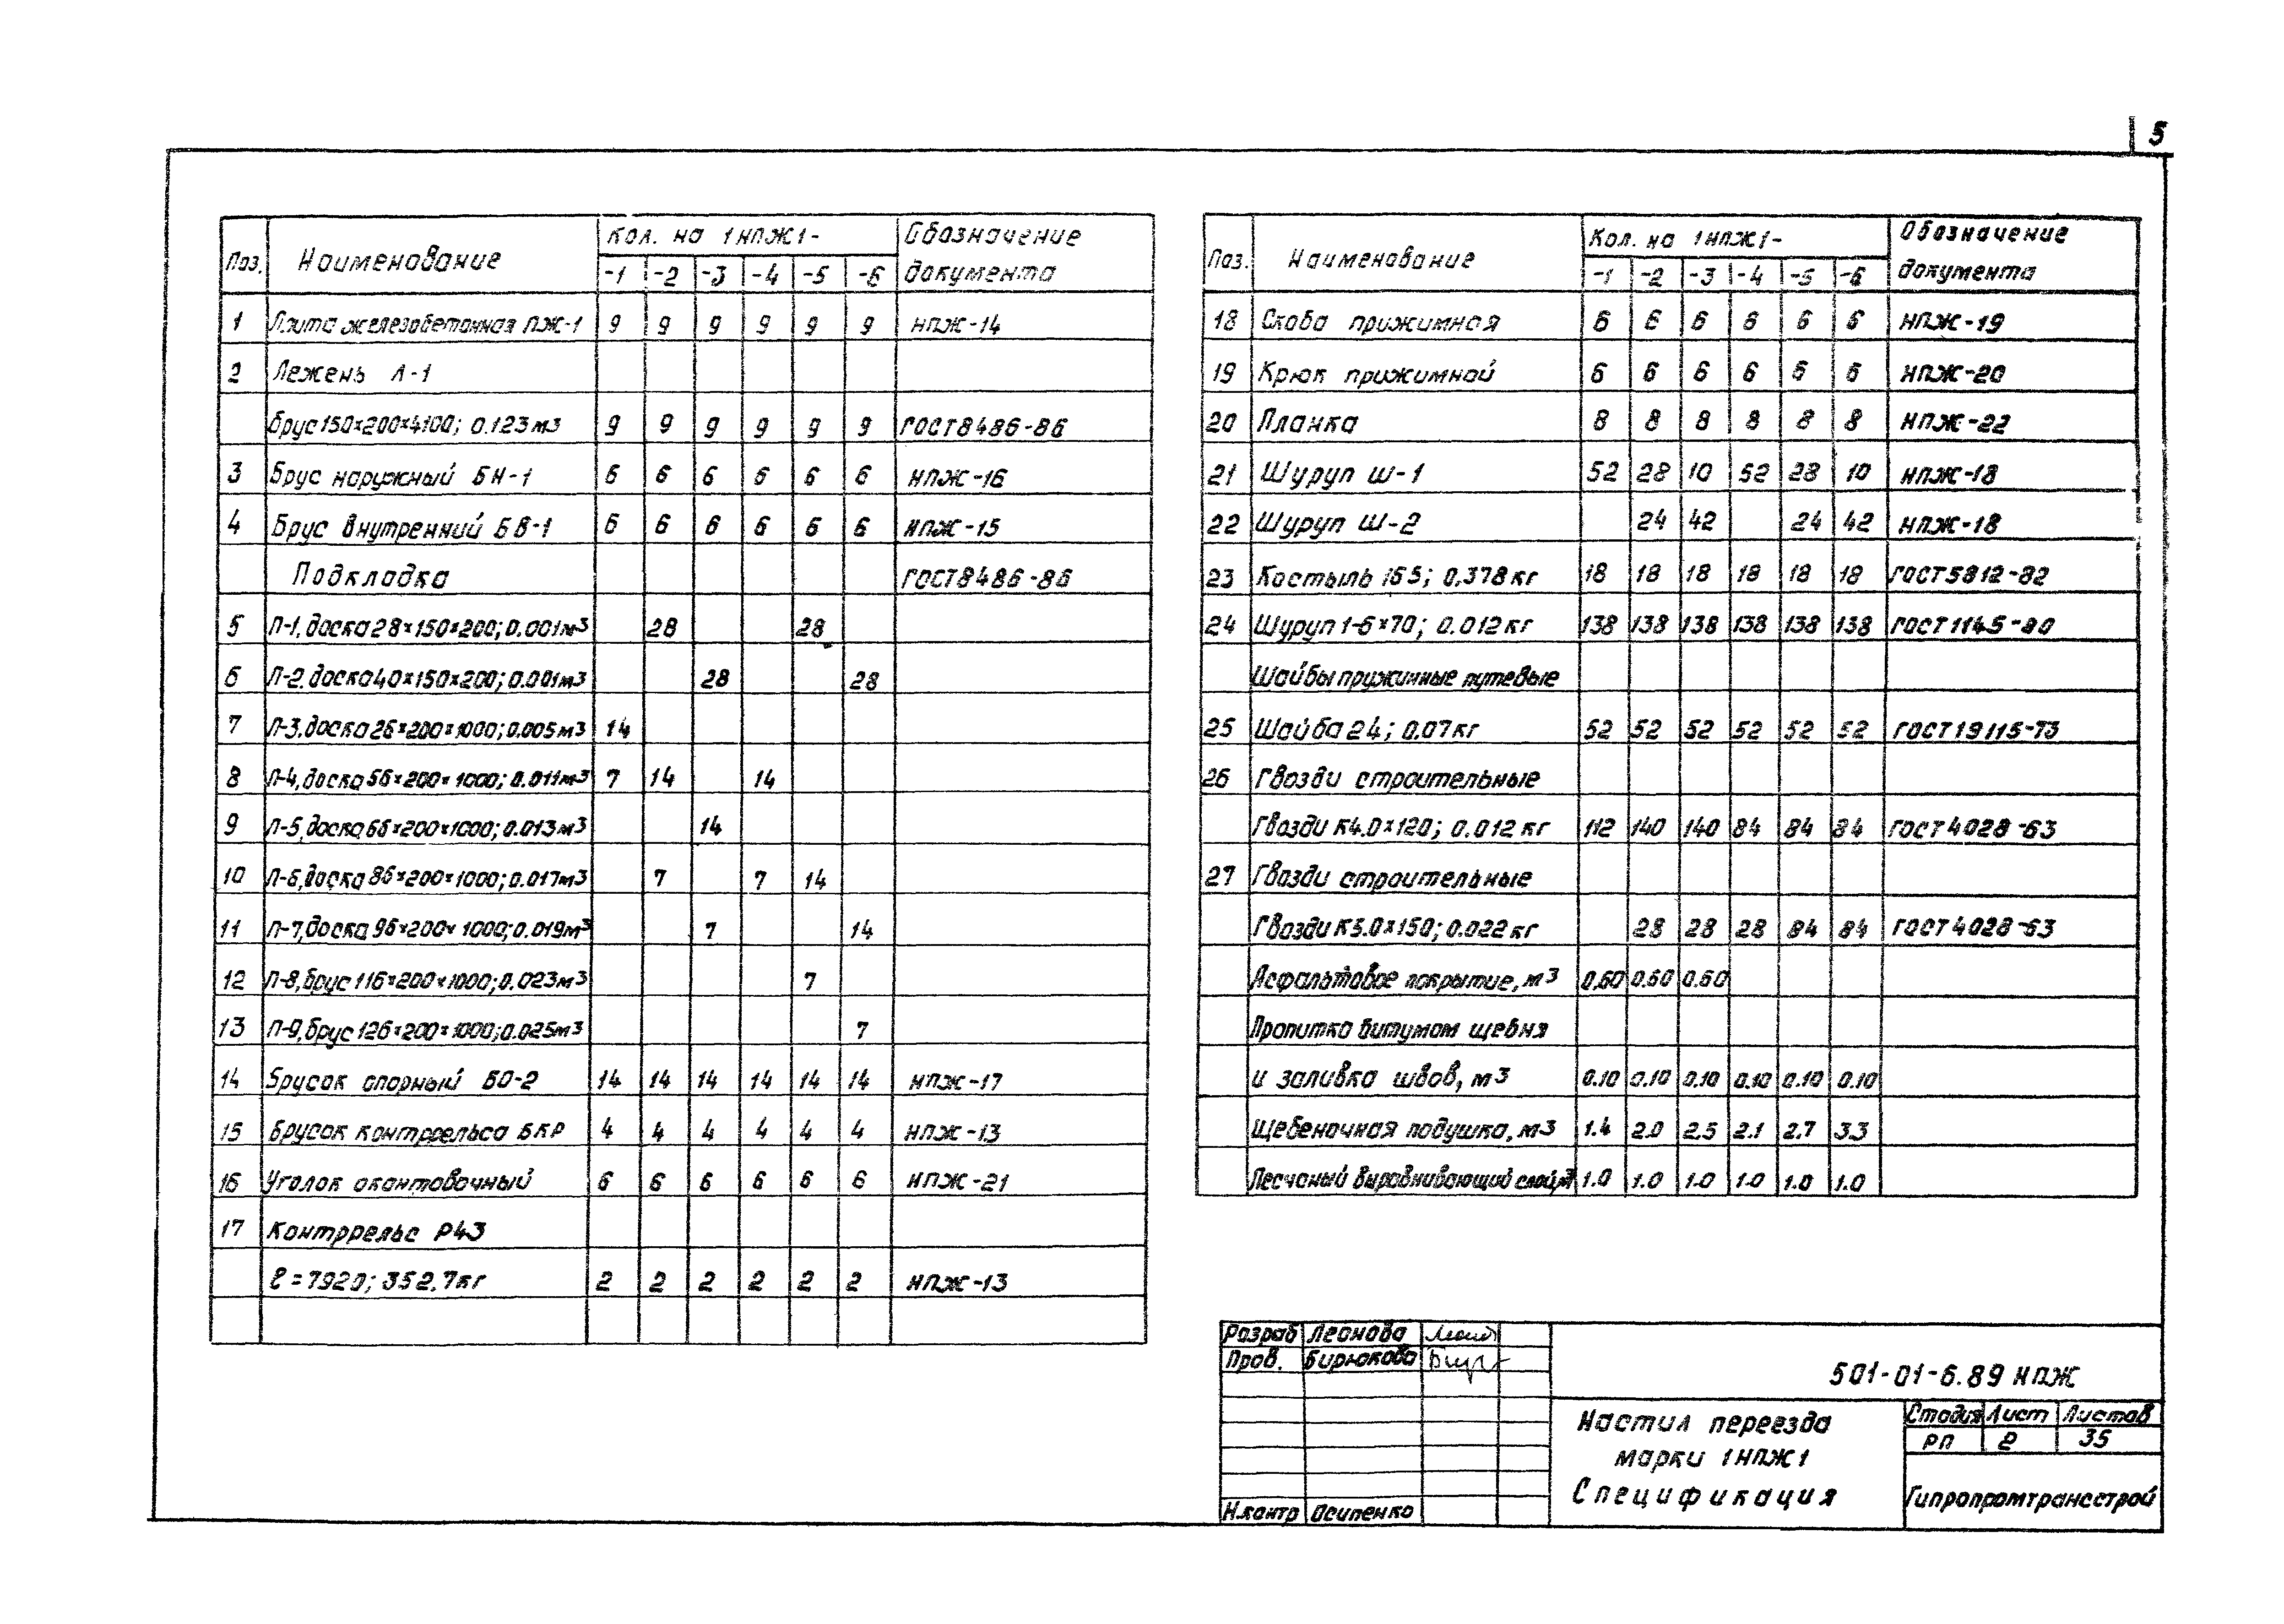 5
Поз. Наименование Кол. на 1нпж1- Обозначение документа
-1 -2 -3 -4 -5 -6
1 Плита железобетонная ПЖ-1 9 9 9 9 9 9 нпж-14
2 Лежень Л-1
брус 150×200×4100; 0.123м3 9 9 9 9 9 9 ГОСТ8486-86
3 Брус наружный БН-1 6 6 6 6 6 6 нпж-16
4 Брус внутренний БВ-1 6 6 6 6 6 6 нпж-15
Подкладка ГОСТ8486-86
5 П-1, доска 28×150×200; 0.001м3 28 28
6 П-2, доска 40×150×200; 0.001м3 28 28
7 П-3, доска 26×200×1000; 0.005м3 14
8 П-4, доска 56×200×1000; 0.011м3 7 14 14
9 П-5, доска 66×200×1000; 0.013м3 14
10 П-6, доска 86×200×1000; 0.017м3 7 7 14
11 П-7, доска 96×200×1000; 0.019м3 7 14
12 П-8, брус 116×200×1000; 0.023м3 7
13 П-9, брус 126×200×1000; 0.025м3 7
14 Брусок опорный БО-2 14 14 14 14 14 14 нпж-17
15 Брусок контррельса БКР 4 4 4 4 4 4 нпж-13
16 Уголок окантовочный 6 6 6 6 6 6 нпж-21
17 Контррельс Р43
ℓ=7920; 352.7кг 2 2 2 2 2 2 нпж-13
Поз. Наименование Кол. на 1нпж1- Обозначение документа
-1 -2 -3 -4 -5 -6
18 Скоба прижимная 6 6 6 6 6 6 нпж-19
19 Крюк прижимной 6 6 6 6 6 6 нпж-20
20 Планка 8 8 8 8 8 8 нпж-22
21 Шуруп Ш-1 52 28 10 52 28 10 нпж-18
22 Шуруп Ш-2 24 42 24 42 нпж-18
23 Костыль 165; 0,378кг 18 18 18 18 18 18 ГОСТ5812-82
24 Шуруп 1-6×70; 0.012кг 138 138 138 138 138 138 ГОСТ1145-80
Шайбы пружинные путевые
25 Шайба 24; 0.07кг 52 52 52 52 52 52 ГОСТ19115-73
26 Гвозди строительные
Гвозди К4.0×120; 0.012кг 112 140 140 84 84 84 ГОСТ4028-63
27 Гвозди строительные
Гвозди К5.0×150; 0.022кг 28 28 28 84 84 ГОСТ4028-63
Асфальтовое покрытие, м3 0.60 0.60 0.60
Пропитка битумом щебня
и заливка швов, м3 0.10 0.10 0.10 0.10 0.10 0.10
Щебеночная подушка, м3 1.4 2.0 2.5 2.1 2.7 3.3
Песчаный выравнивающий слой,м3 1.0 1.0 1.0 1.0 1.0 1.0
Разраб Леонова
Пров. Бирюкова
Н.контр Осипенко
501-01-6.89 НПЖ
Настил переезда
марки 1НПЖ1
Спецификация
Стадия Лист Листов
РП 2 35
Гипропромтрансстрой